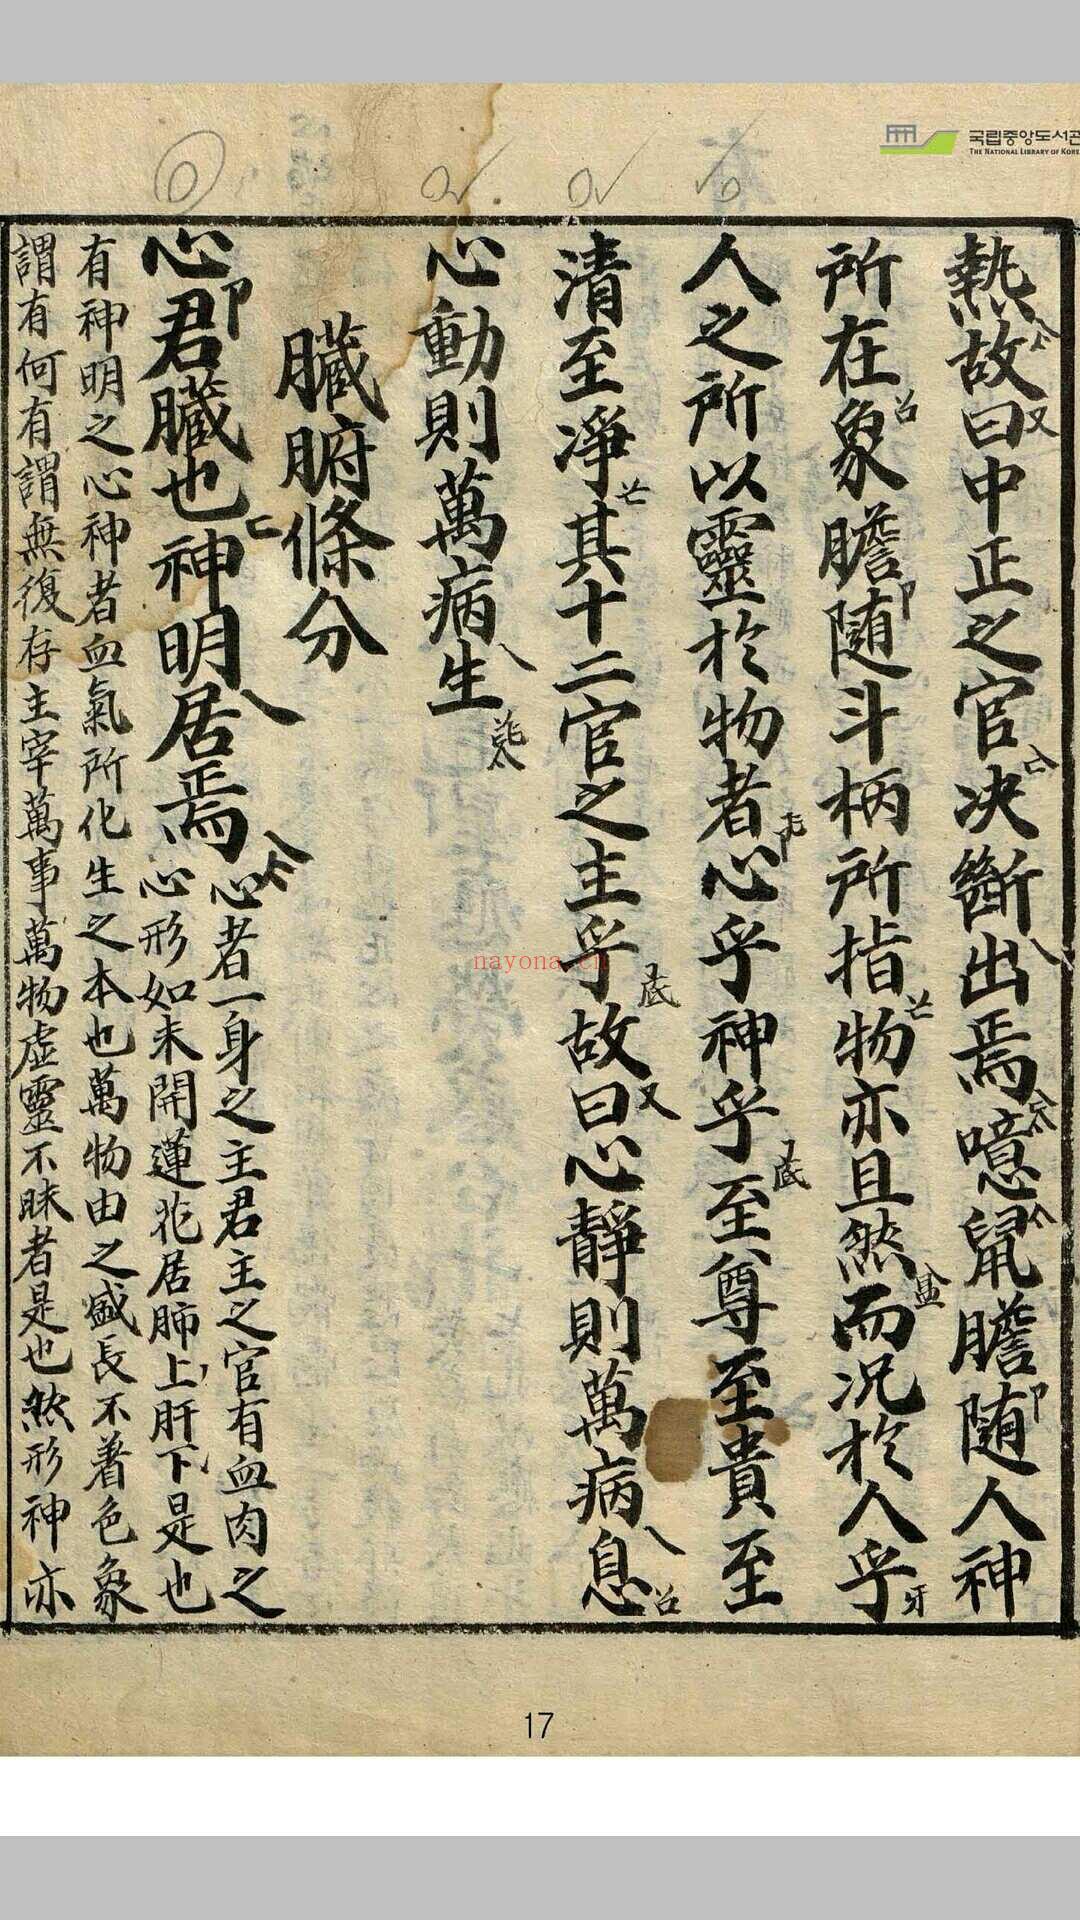 국립중앙도서관
THE NATIONAL LIBRARY OF KOREA
熱故曰中正之官決斷出焉噫鼠膽隨人神
所在象膽隨斗柄所指物亦且然而况於人乎
人之所以靈於物者心乎神乎至尊至貴至
清至淨其十二官之主乎故曰心靜則萬病息
心動則萬病生
臟腑條分
心君臟也神明居焉
心者一身之主君主之官有血肉之
心形如未開蓮花居肺上肝下是也
有神明之心神者血氣所化生之本也萬物由之盛長不著色象
謂有何有謂無復存主宰萬事萬物虛靈不昧者是也然形神亦
nayona.cn
17